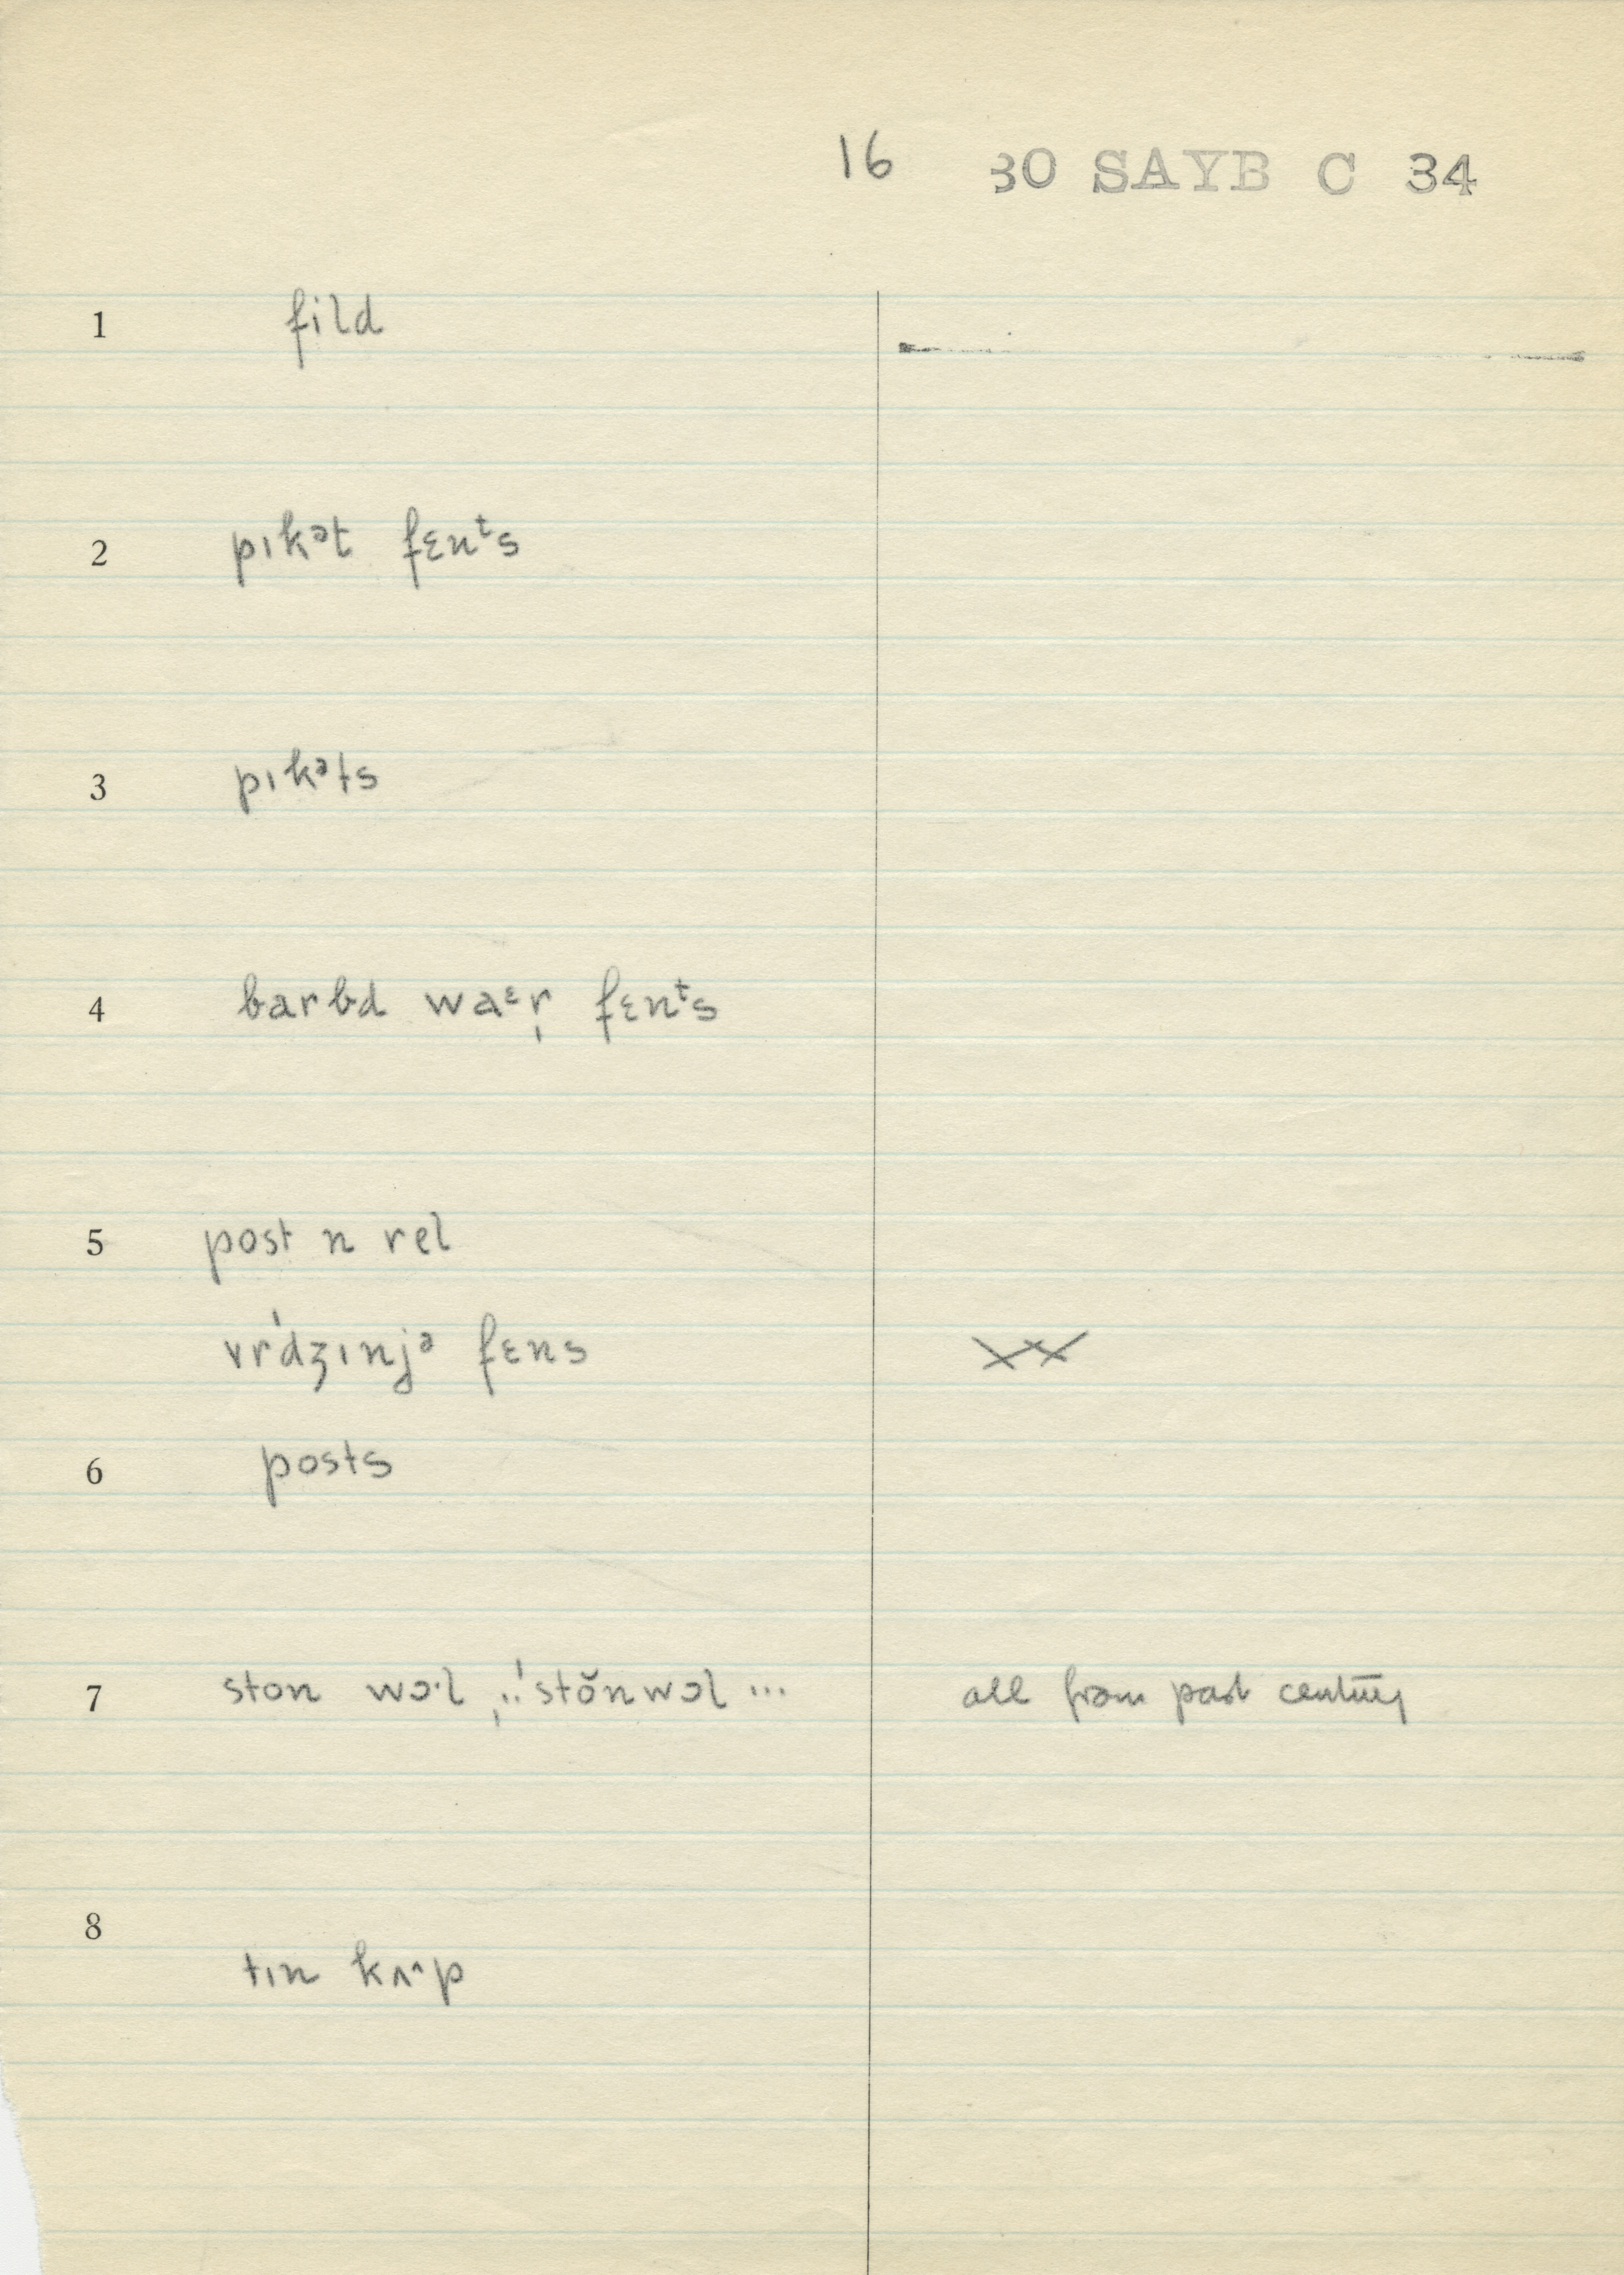 16 30 SAYB C 34
1 fild
2 pɪkᵊt fɛnᵗs
3 pɪkᵊts
4 barbd waᵋr̩ fɛnᵗs
5 post n rel
vr̍dʒɪnjᵊ fɛns
6 posts
7 ston wɔ·l , ..ˈstŏnwɔl ... all from past century
8
tɪn kʌ^p